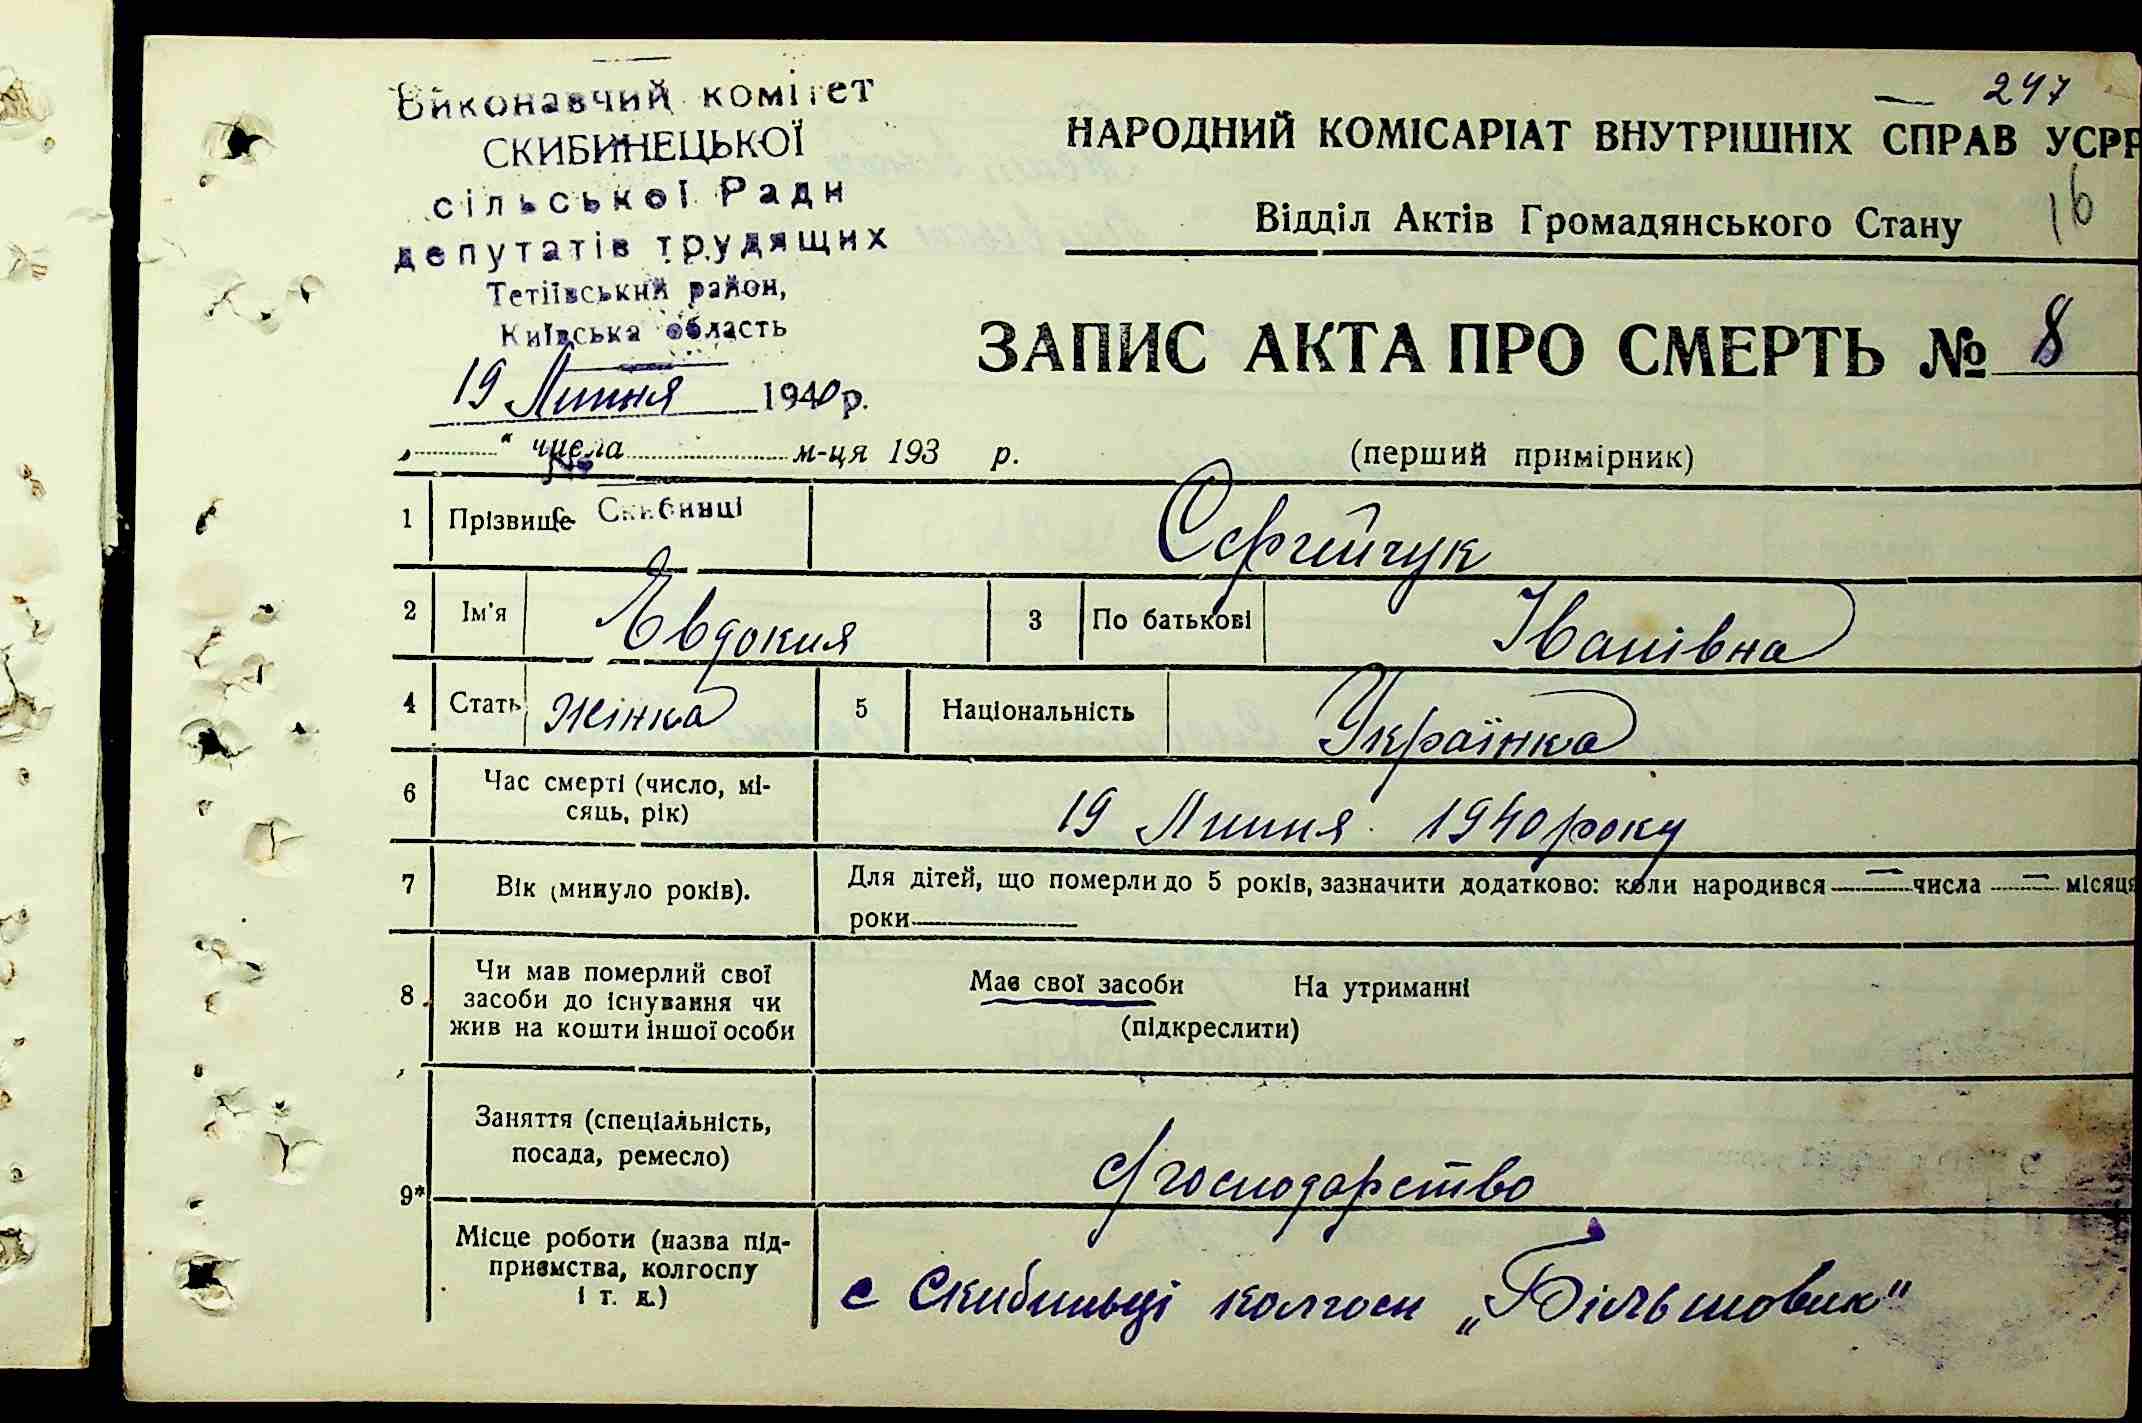 247
Виконавчий комітет
СКИБИНЕЦЬКОЇ
сільської Ради
депутатів трудящих
Тетіївський район,
Київська область
19 Липня 1940 р.
НАРОДНИЙ КОМІСАРІАТ ВНУТРІШНІХ СПРАВ УСРР
16
Відділ Актів Громадянського Стану
ЗАПИС АКТА ПРО СМЕРТЬ № 8
„ “ числа м-ця 193 р. (перший примірник)
№
с. Скибинці
1 Прізвище Сергійчук
2 Ім'я Євдокия 3 По батькові Іванівна
4 Стать жінка 5 Національність Українка
6 Час смерті (число, мі-
сяць, рік) 19 Липня 1940 року
7 Вік (минуло років). Для дітей, що померли до 5 років, зазначити додатково: коли народився — числа — місяця
роки
8 Чи мав померлий свої
засоби до існування чи
жив на кошти іншої особи
Має свої засоби На утриманні
(підкреслити)
9* Заняття (спеціальність,
посада, ремесло) с/господарство
Місце роботи (назва під-
приємства, колгоспу
і т. д.) с Скибиньці колгосп „Більшовик"